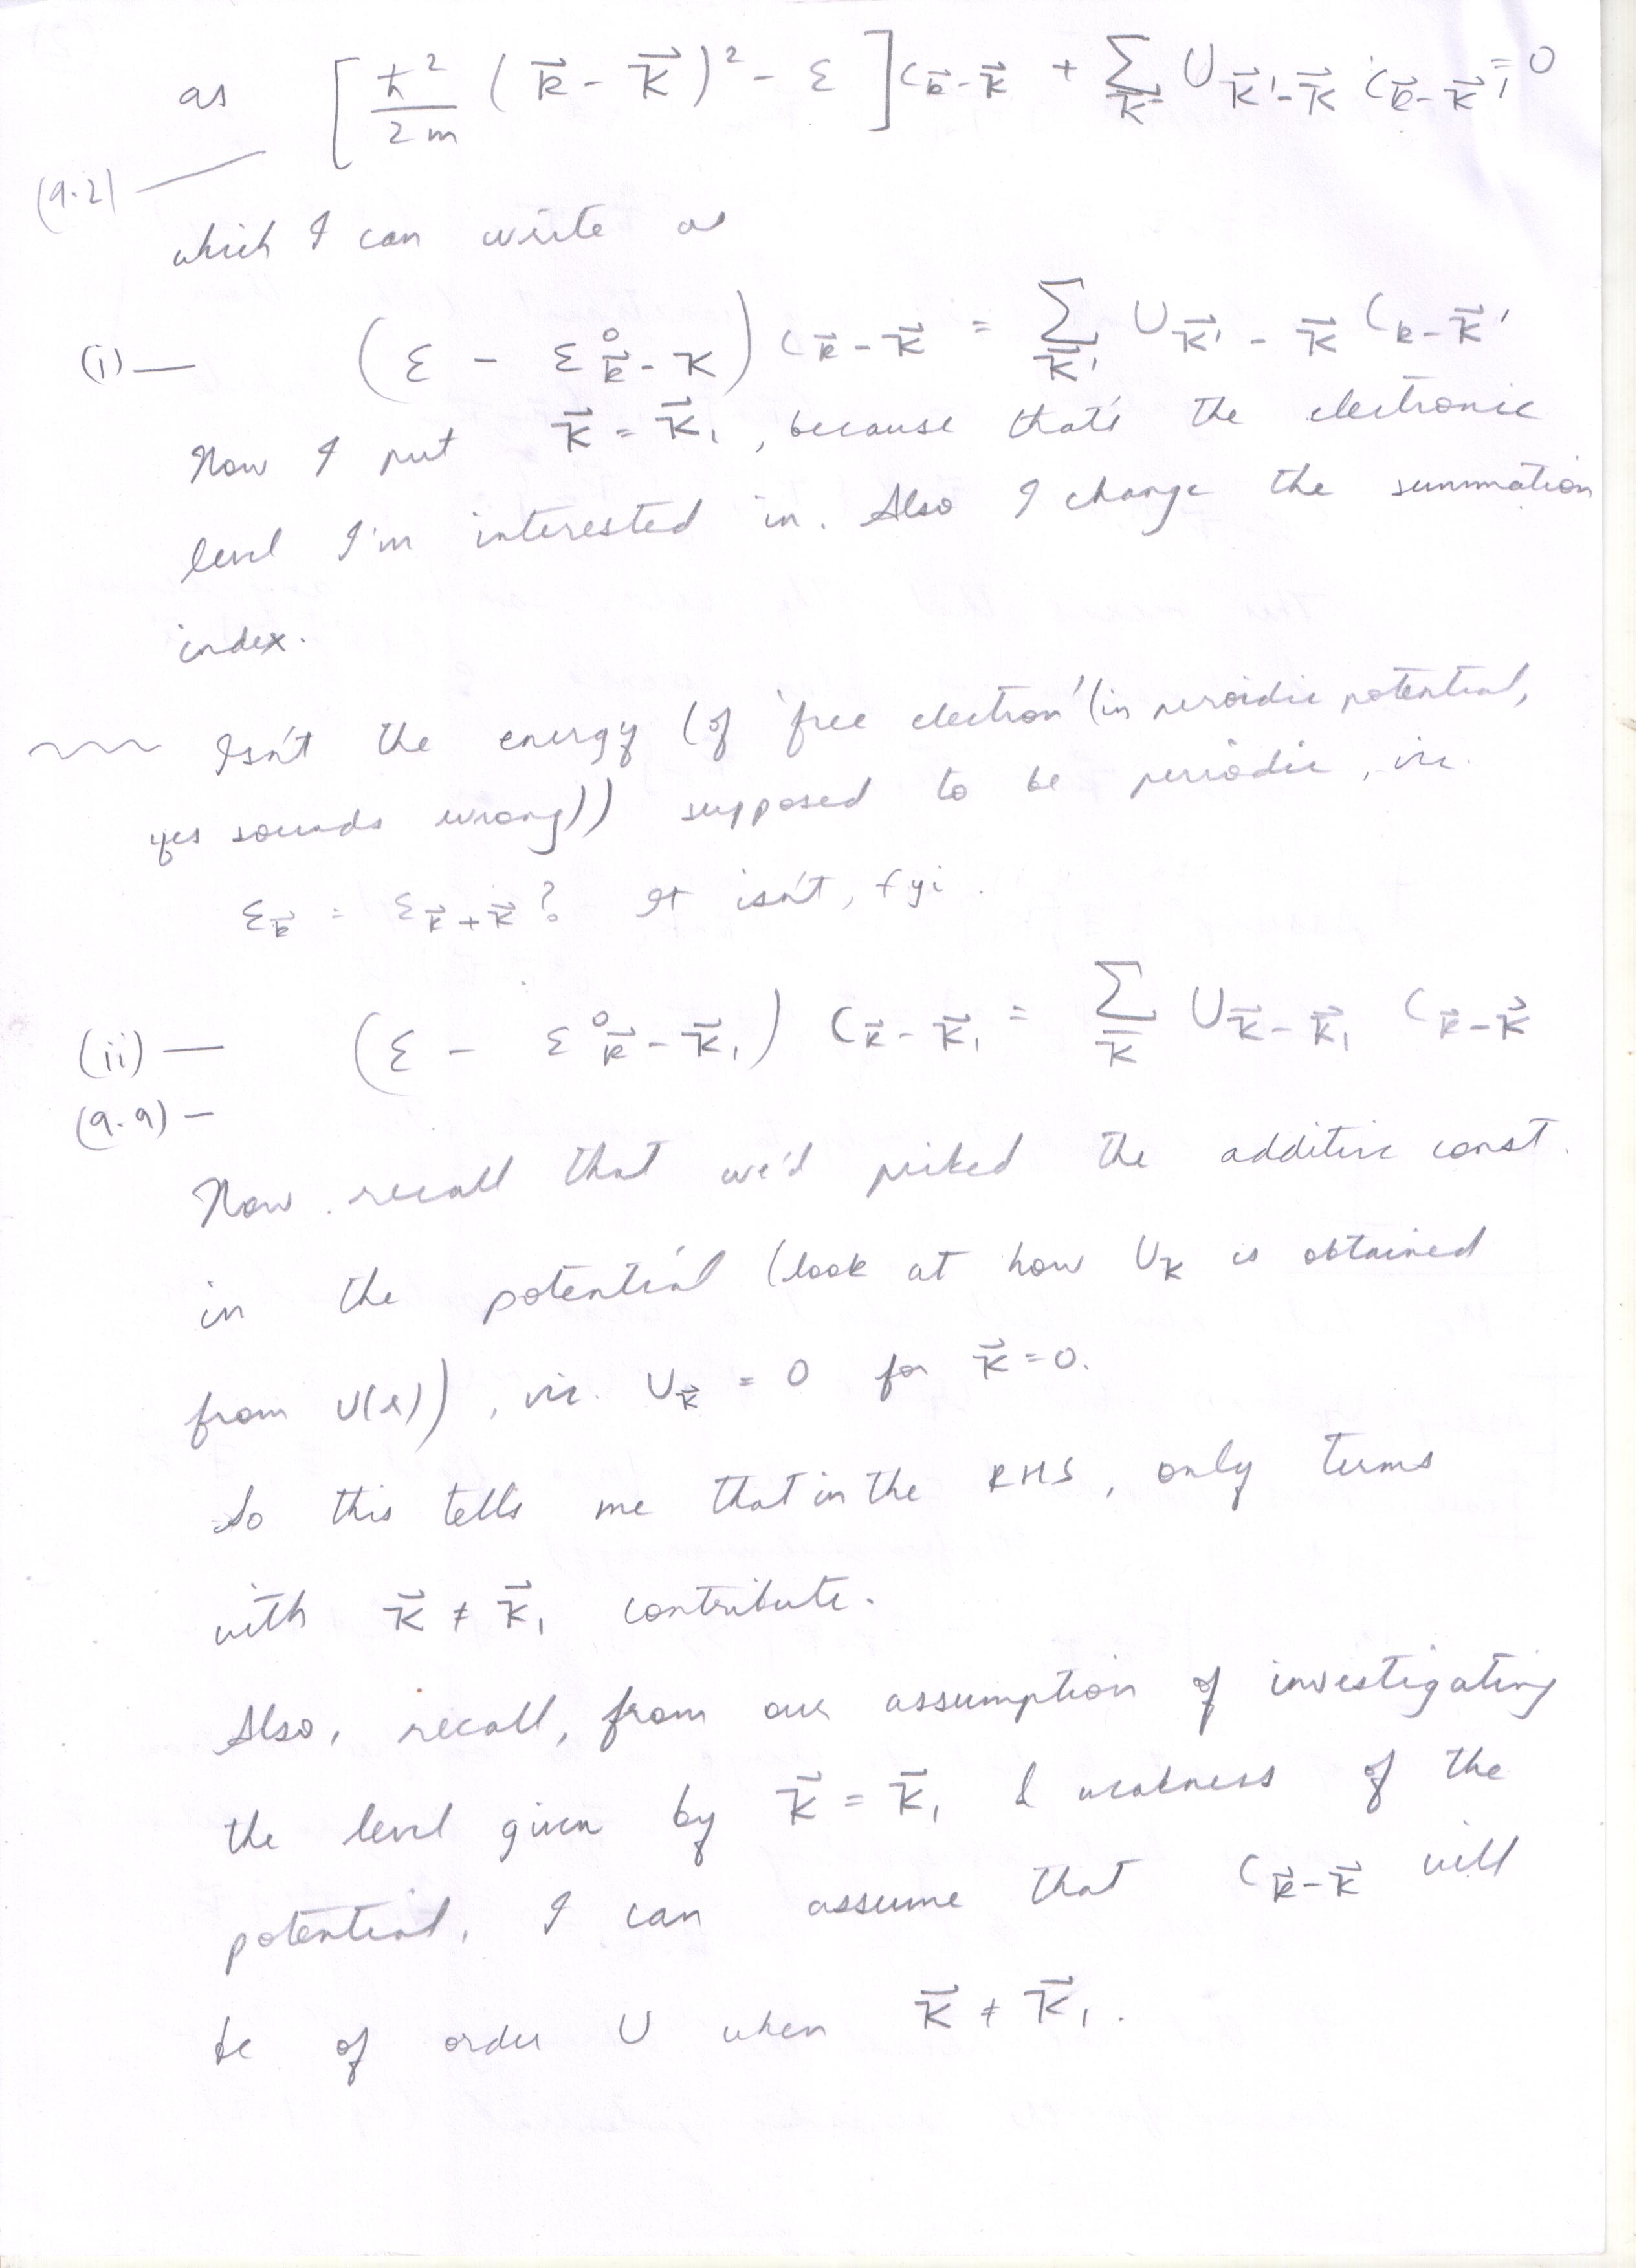 as [ħ²/2m (k⃗ - K⃗)² - ε] c_{k⃗-K⃗} + Σ_{K⃗'} U_{K⃗'-K⃗} c_{k⃗-K⃗'} = 0
(9.2) —
which I can write as
(i) — (ε - ε⁰_{k⃗-K}) c_{k⃗-K⃗} = Σ_{K⃗'} U_{K⃗'-K⃗} c_{k-K⃗'}
Now I put K⃗ = K⃗₁, because that's the electronic
level I'm interested in. Also I change the summation
index.
~~~ Isn't the energy (of 'free electron' (in peroidic potential,
yes sounds wrong)) supposed to be periodic, viz.
ε_{k⃗} = ε_{k⃗+K⃗}? It isn't, fyi.
(ii) — (ε - ε⁰_{k⃗-K⃗₁}) c_{k⃗-K⃗₁} = Σ_{K⃗} U_{K⃗-K⃗₁} c_{k⃗-K⃗}
(9.9) —
Now recall that we'd picked the additive const.
in the potential (look at how U_K is obtained
from U(r)), viz. U_{K⃗} = 0 for K⃗ = 0.
So this tells me that in the RHS, only terms
with K⃗ ≠ K⃗₁ contribute.
Also, recall, from our assumption of investigating
the level given by K⃗ = K⃗₁ & weakness of the
potential, I can assume that c_{k⃗-K⃗} will
be of order U when K⃗ ≠ K⃗₁.